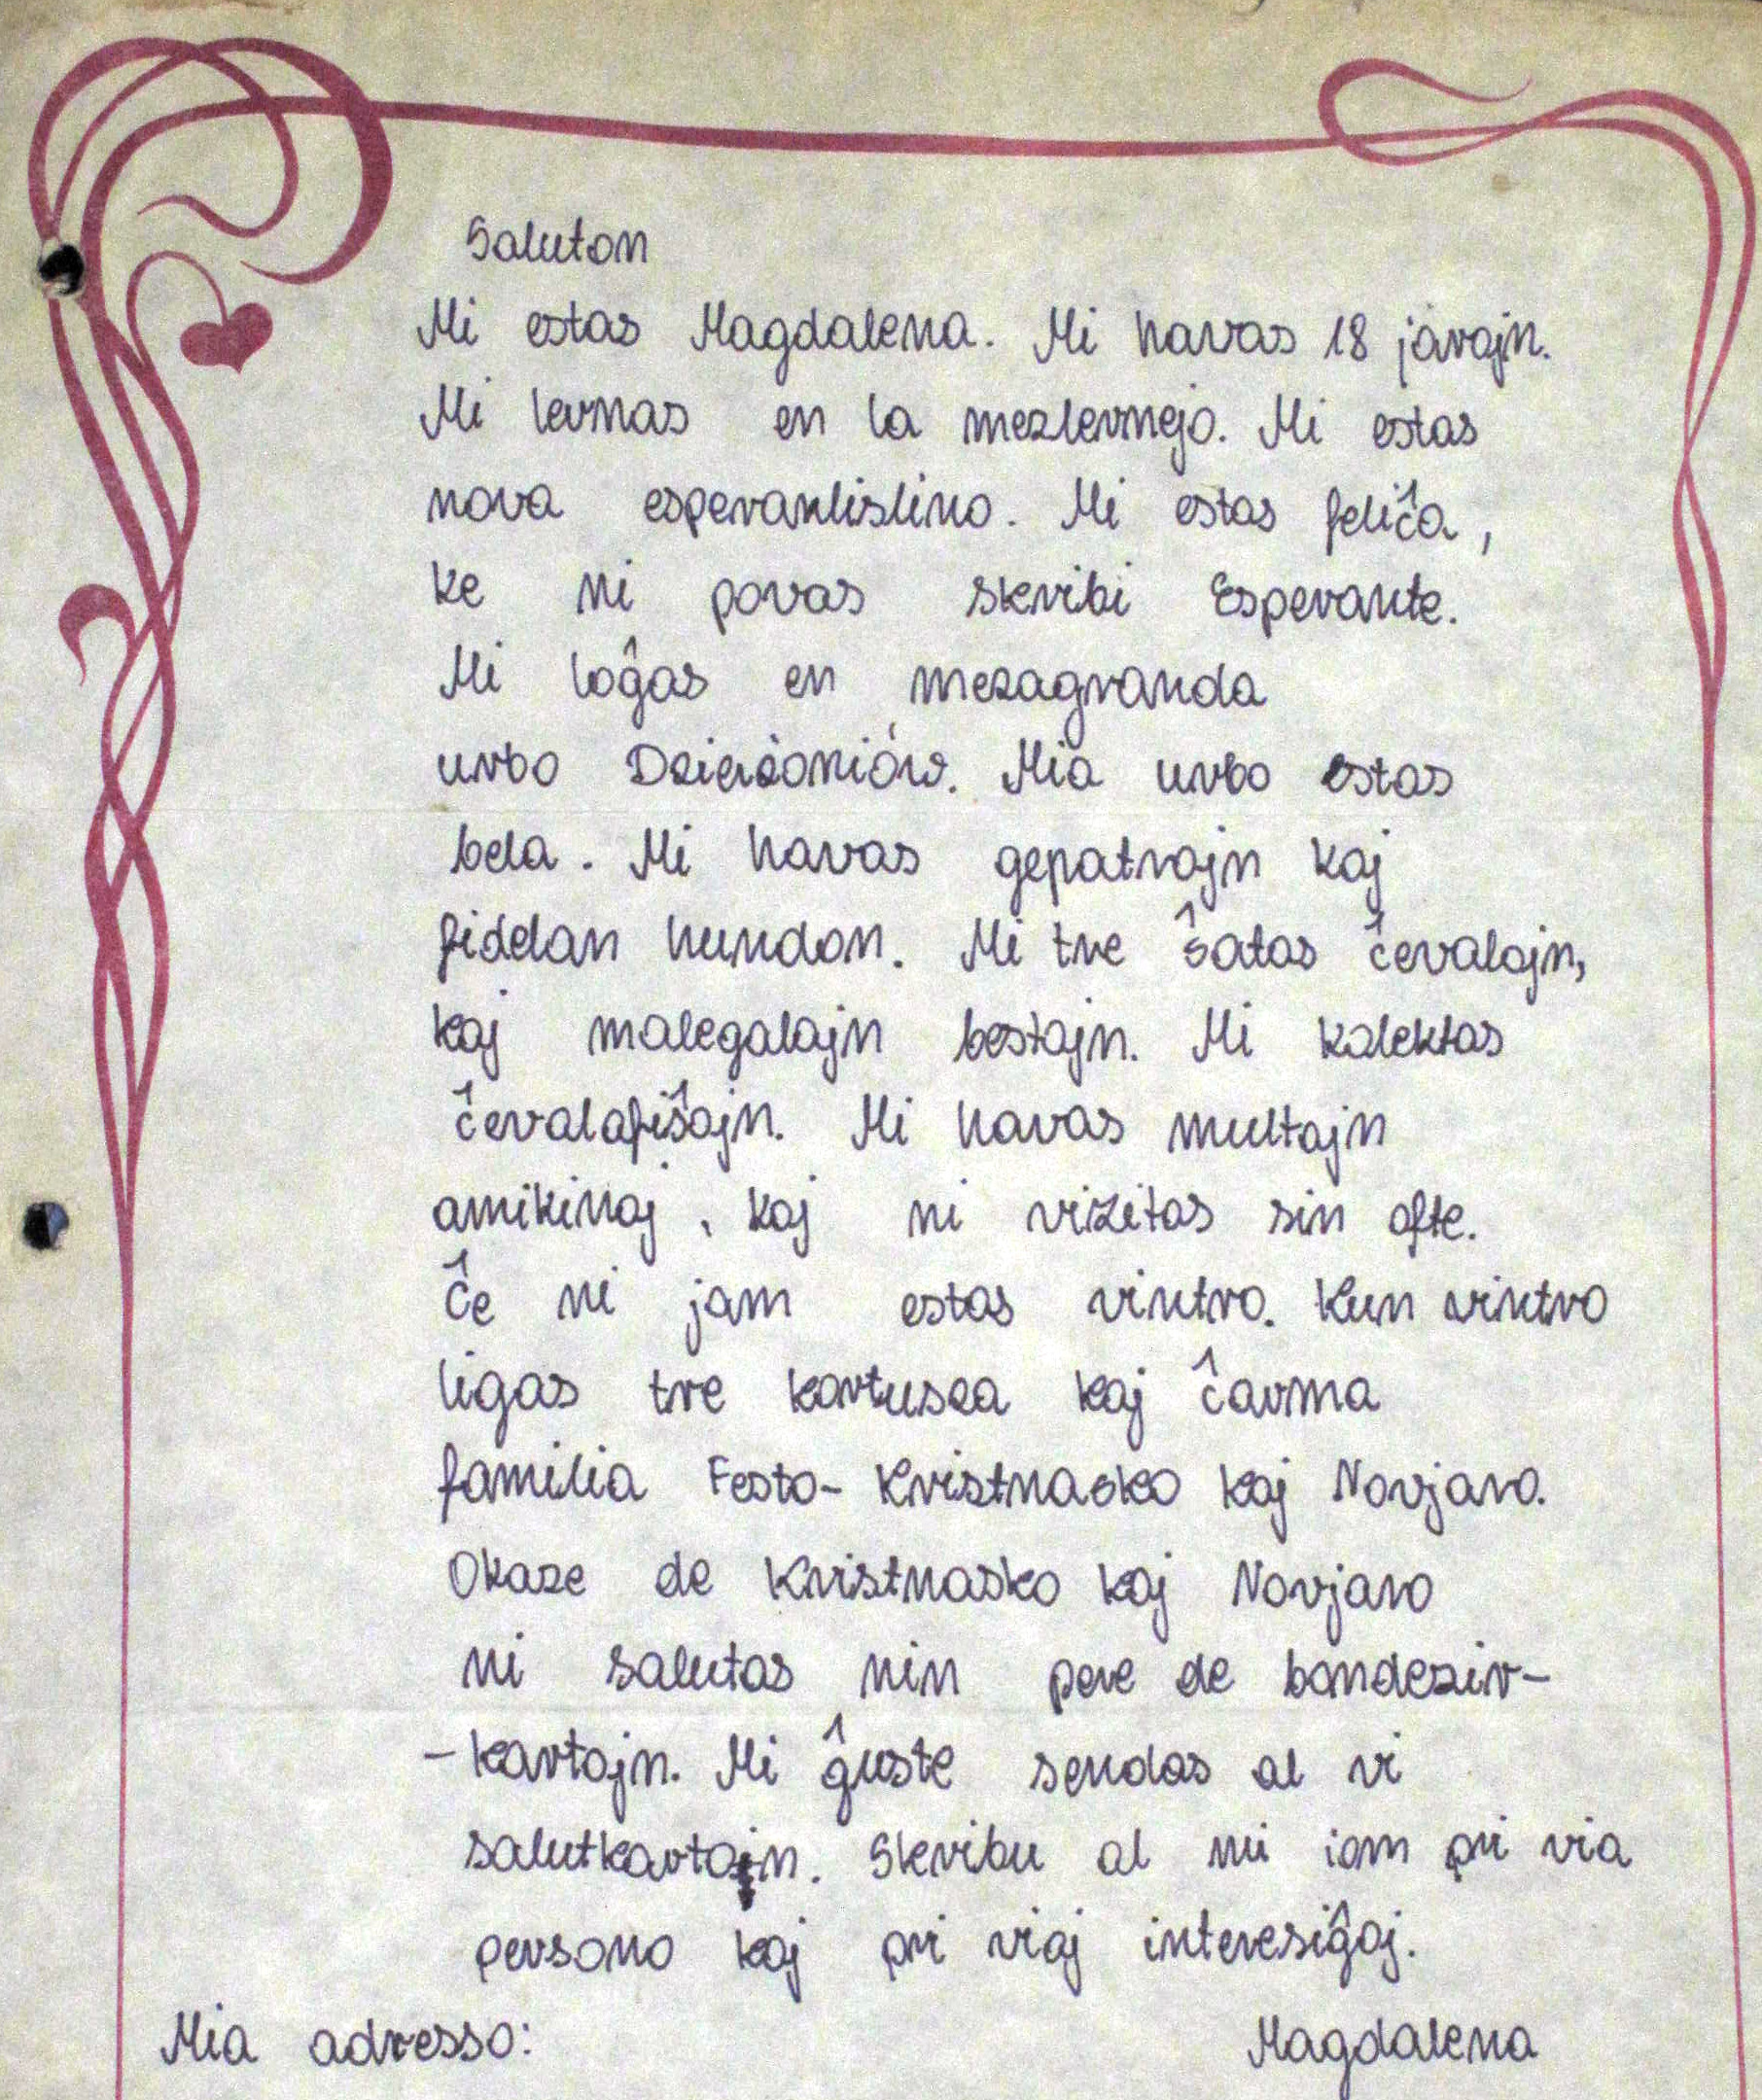 Saluton
Mi estas Magdalena. Mi havas 18 jarojn.
Mi lernas en la mezlernejo. Mi estas
nova esperantistino. Mi estas feliĉa,
ke ni povas skribi Esperante.
Mi loĝas en mezagranda
urbo Dzierżoniów. Mia urbo estas
bela. Mi havas gepatrojn kaj
fidelan hundon. Mi tre ŝatas ĉevalojn,
kaj malegalajn bestajn. Mi kolektas
ĉevalafiŝojn. Mi havas multajn
amikinoj, kaj ni vizitas sin ofte.
Ĉe ni jam estas vintro. Kun vintro
ligas tre kortusza kaj ĉarma
familia Festo- Kristnasko kaj Novjaro.
Okaze de Kristnasko kaj Novjaro
ni salutas nin pere de bondezir-
-kartojn. Mi ĝuste sendas al vi
salutkartojn. Skribu al mi iom pri via
persono kaj pri viaj interesiĝoj.
Mia adresso: Magdalena